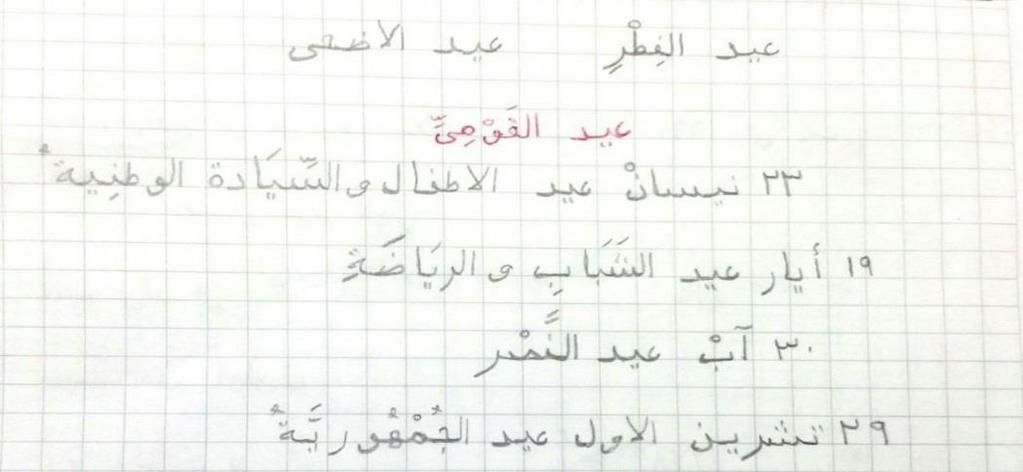 عيد الفِطْرِ عيد الاضحى
عيد القَوْمِيِّ
٢٣ نيسانْ عيد الاطفال و السِّيَادة الوطنِية
١٩ أيار عيد الشَبَابِ و الريَاضَةِ
٣٠ آبْ عيد النَّصْر
٢٩ تشرين الاول عيد الجُمْهُوريَّةُ